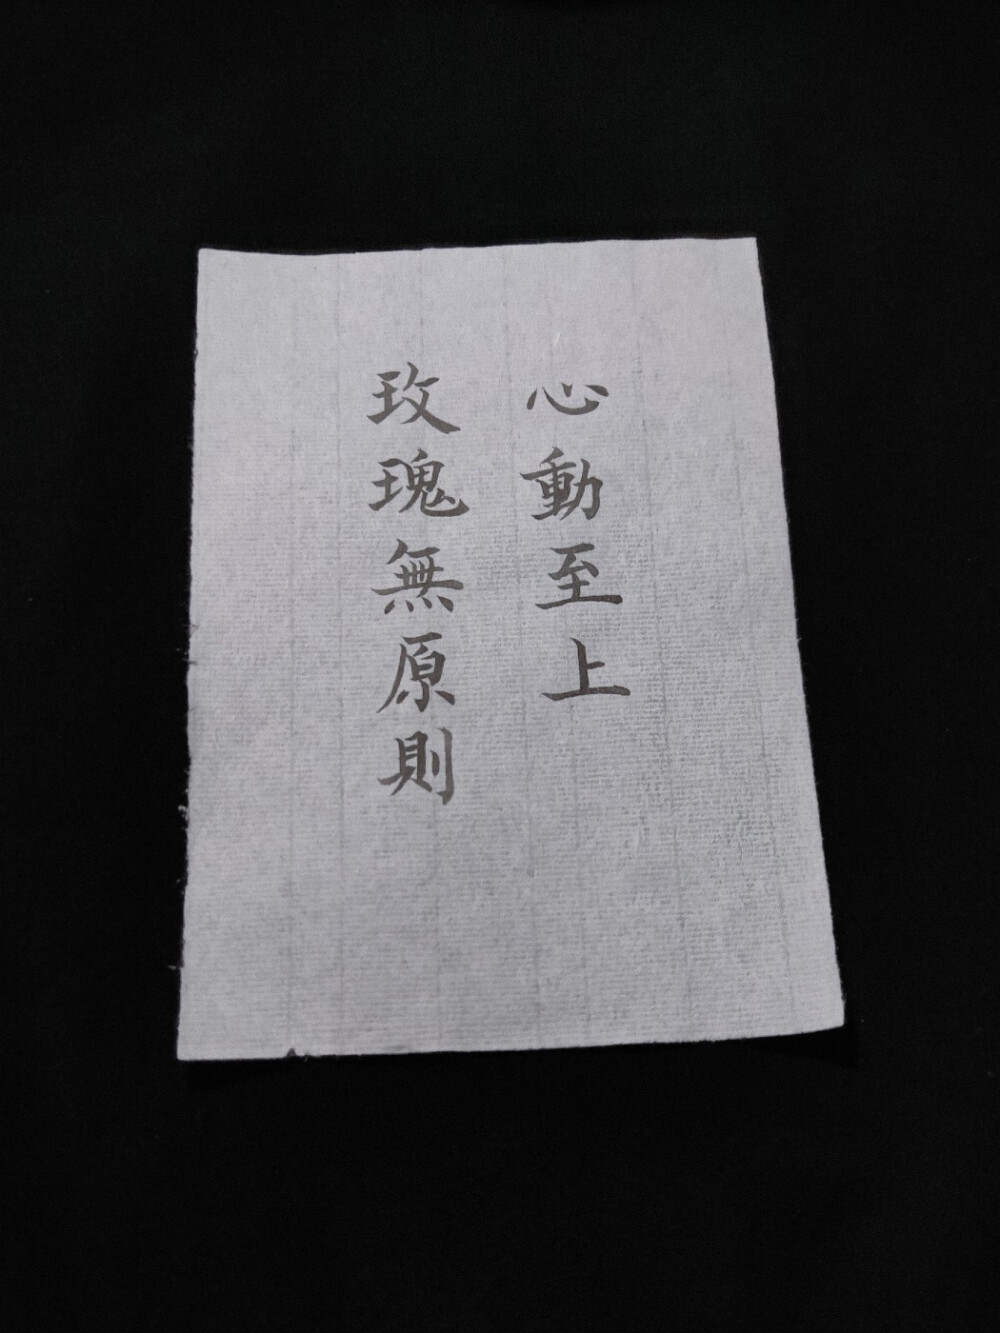 心動至上
玫瑰無原則